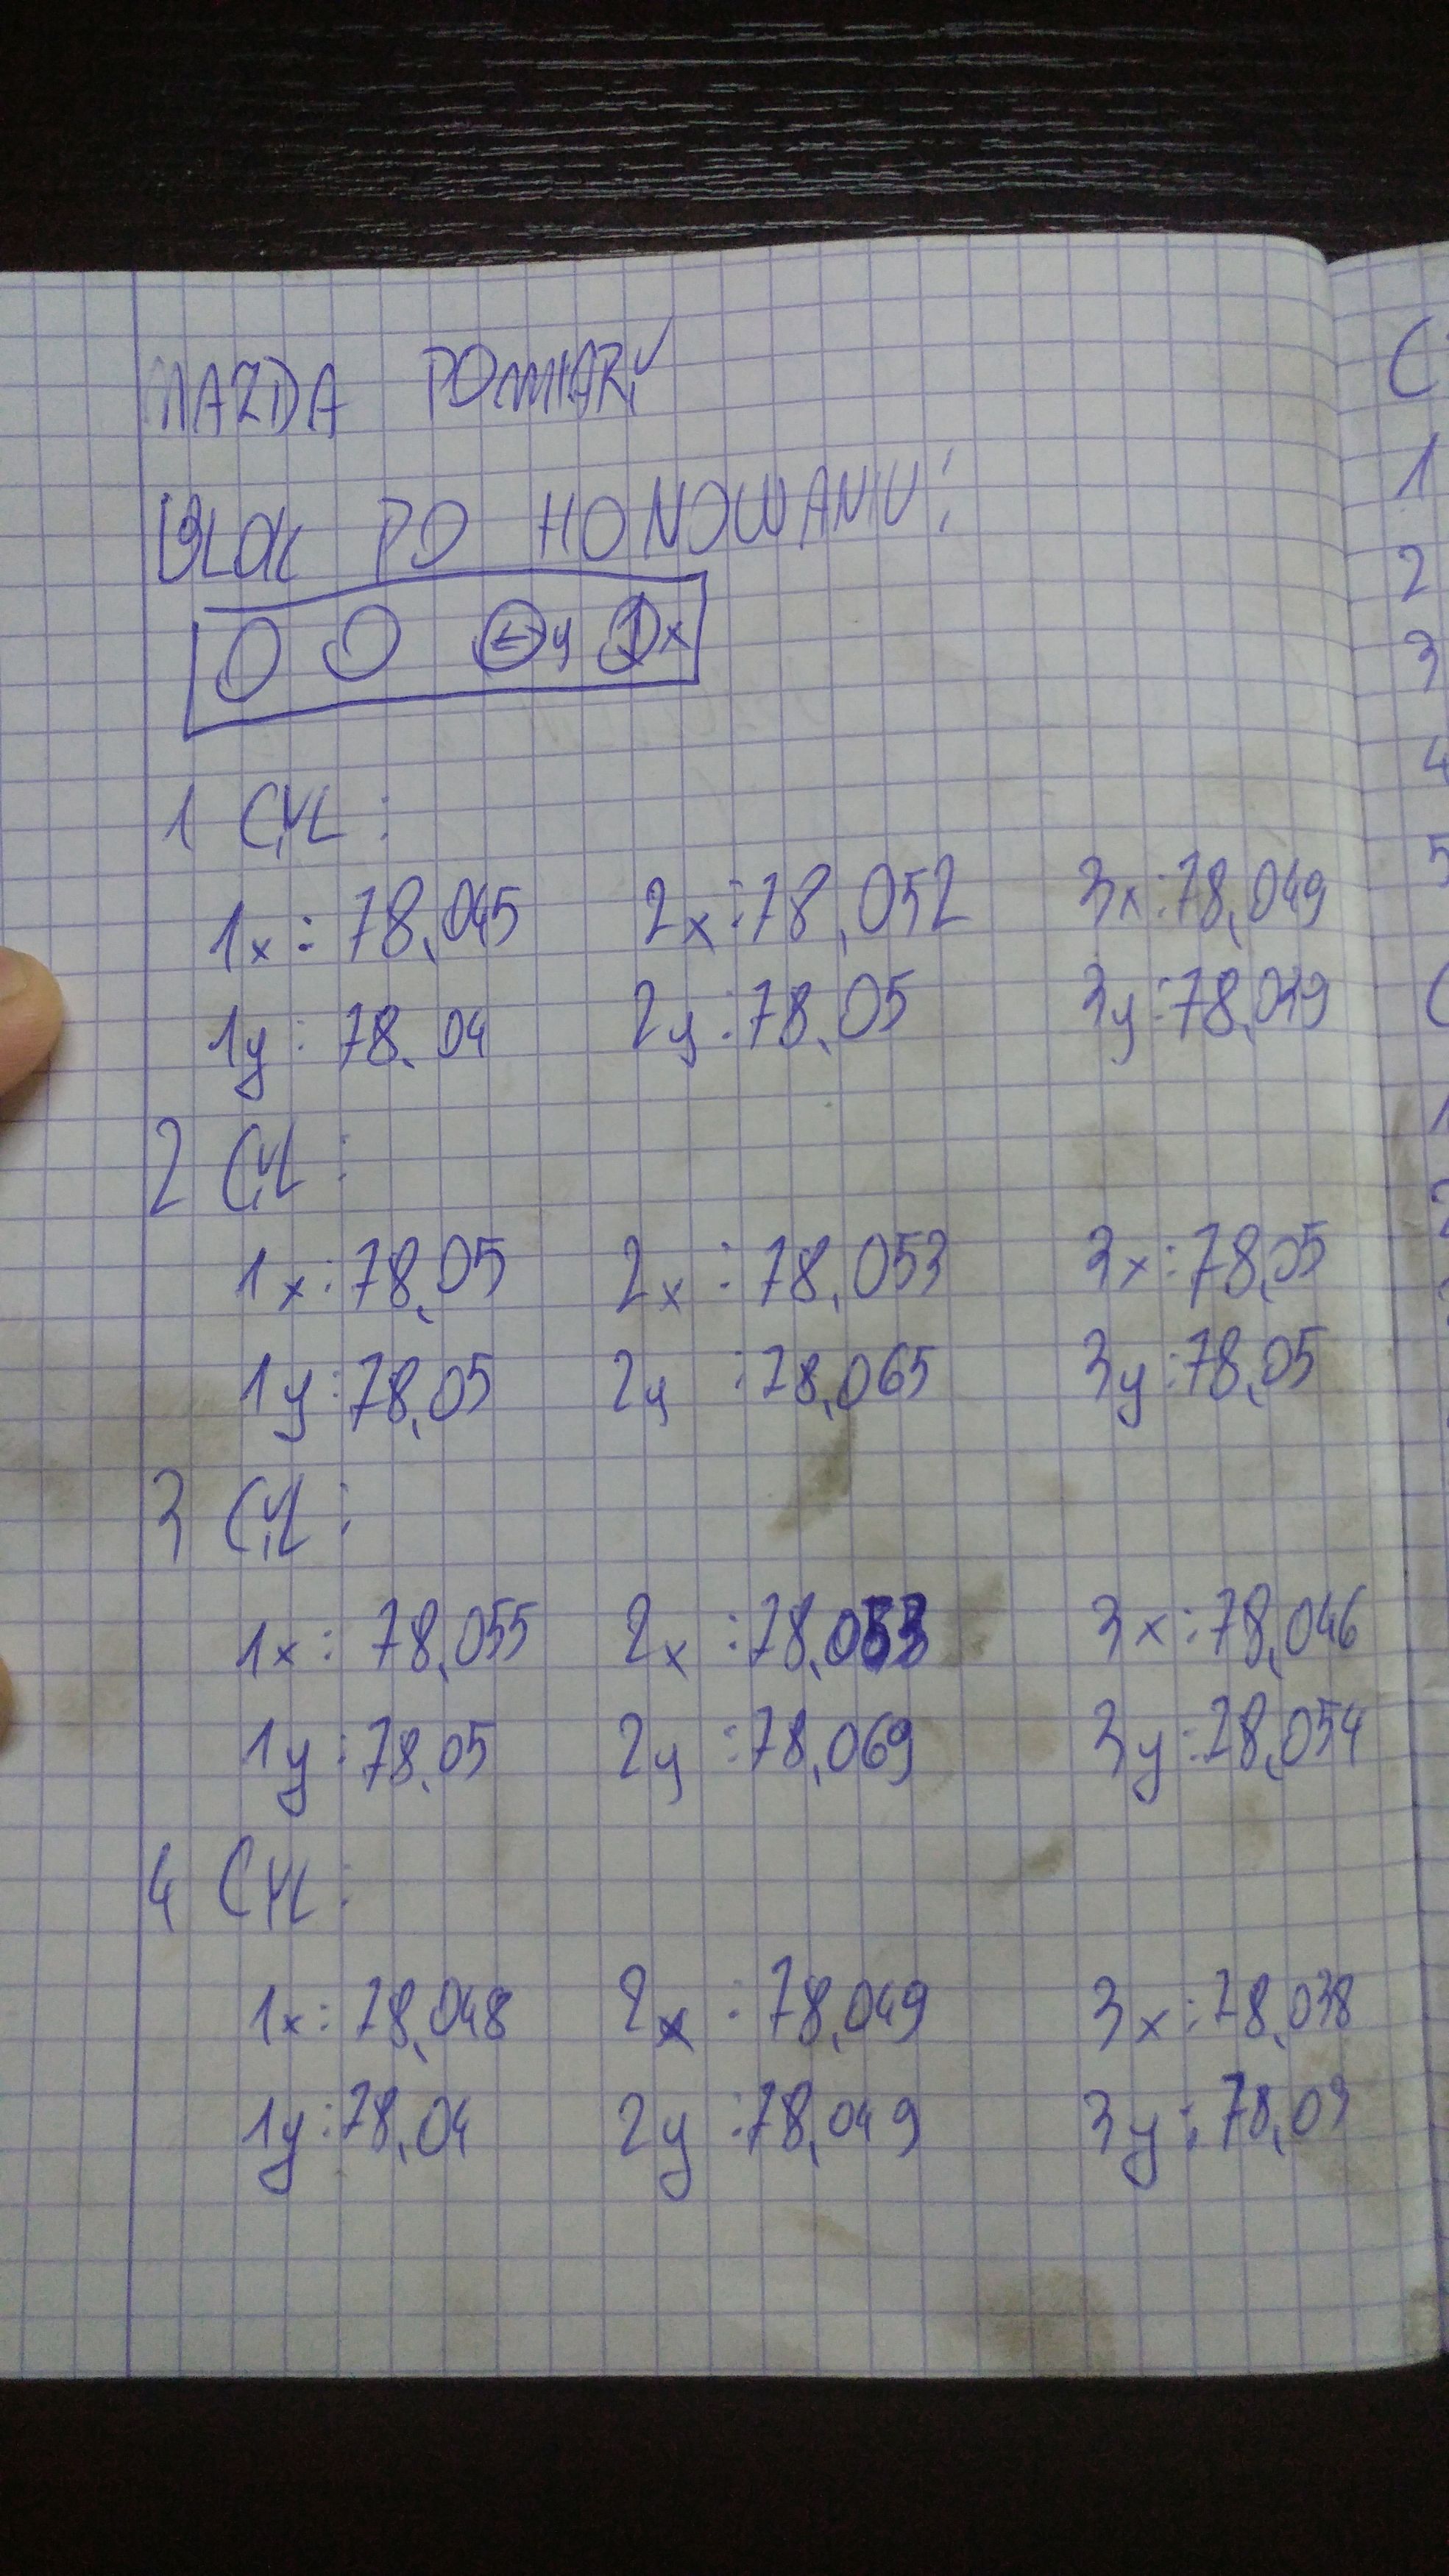 MAZDA POMIARY
BLOK PO HONOWANIU:
y x
1 CYL:
1x: 78,045 2x: 78,052 3x: 78,049
1y: 78,04 2y: 78,05 3y: 78,039
2 CYL:
1x: 78,05 2x: 78,053 3x: 78,05
1y: 78,05 2y: 78,065 3y: 78,05
3 CYL:
1x: 78,055 2x: 78,053 3x: 78,046
1y: 78,05 2y: 78,069 3y: 78,054
4 CYL:
1x: 78,048 2x: 78,049 3x: 78,038
1y: 78,04 2y: 78,049 3y: 78,03
C
1
2
3
4
5